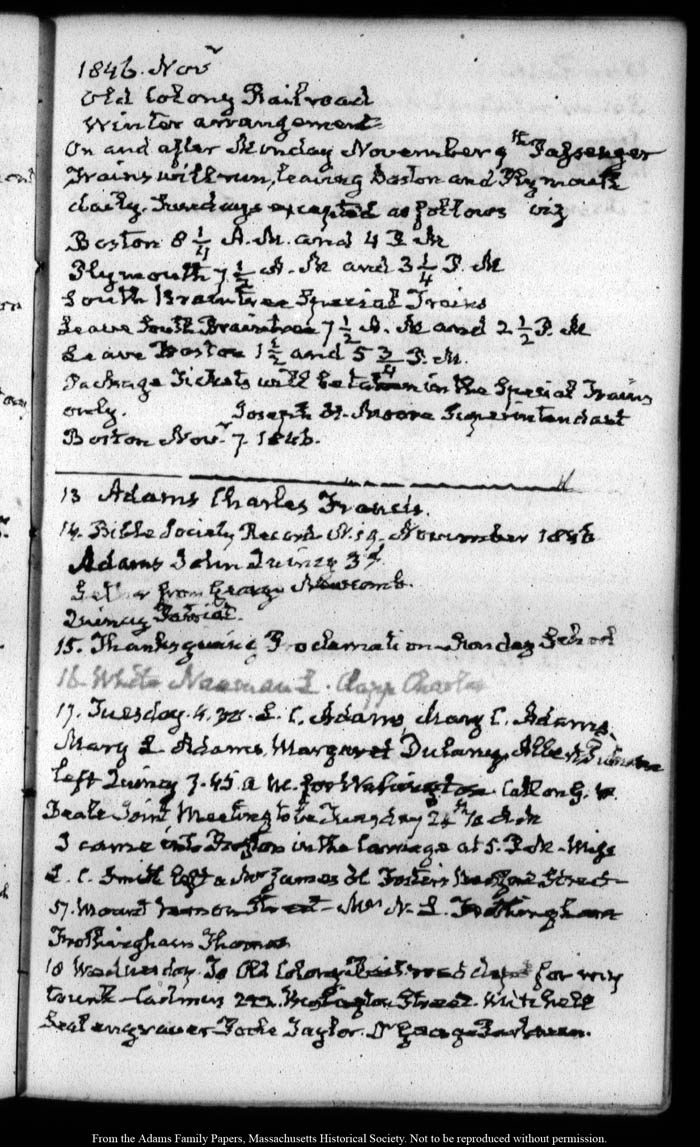 1846. Novr
Old Colony Railroad
Winter arrangement
On and after Monday November 9th Passenger
Trains will run, leaving Boston and Plymouth
daily. Sundays excepted as follows viz
Boston 8 1/4 A.M. and 4 P.M
Plymouth 7 1/2 A.M and 3 1/4 P.M
South Braintree Special Trains
Leave South Braintree 7 1/2 A.M and 2 1/2 P.M
Leave Boston 1 1/2 and 5 3/4 P.M.
Package Tickets will be taken in the Special Trains
only. Joseph H. Moore Superintendant
Boston Novr 7. 1846.
13 Adams Charles Francis.
14. Bible Society Record N. 19. November 1846
Adams John Quincy 3d
Letter from George Newcomb.
Quincy Patriot.
15. Thanksgiving Proclamation Sunday School
16 White Naaman L. Clapp Charles
17. Tuesday. 4.30. L. C. Adams, Mary C. Adams,
Mary L Adams, Margaret Dulany, Albert
left Quincy 7.45 A M. for Washington. Call on G. W
Beale Joint Meeting to be Tuesday 24th
I came into Boston in the Carriage at 5. P.M - Miss
L. C. Smith left a Mr James H Foster's Street
57. Mount Vernon Street - Mrs N. L. Frothingham
Frothingham Thomas
18 Wednesday To Old Colony Railroad depot for my
trunk - Street. Mitchell
Seal engraver Taylor. Dr George Parkman.